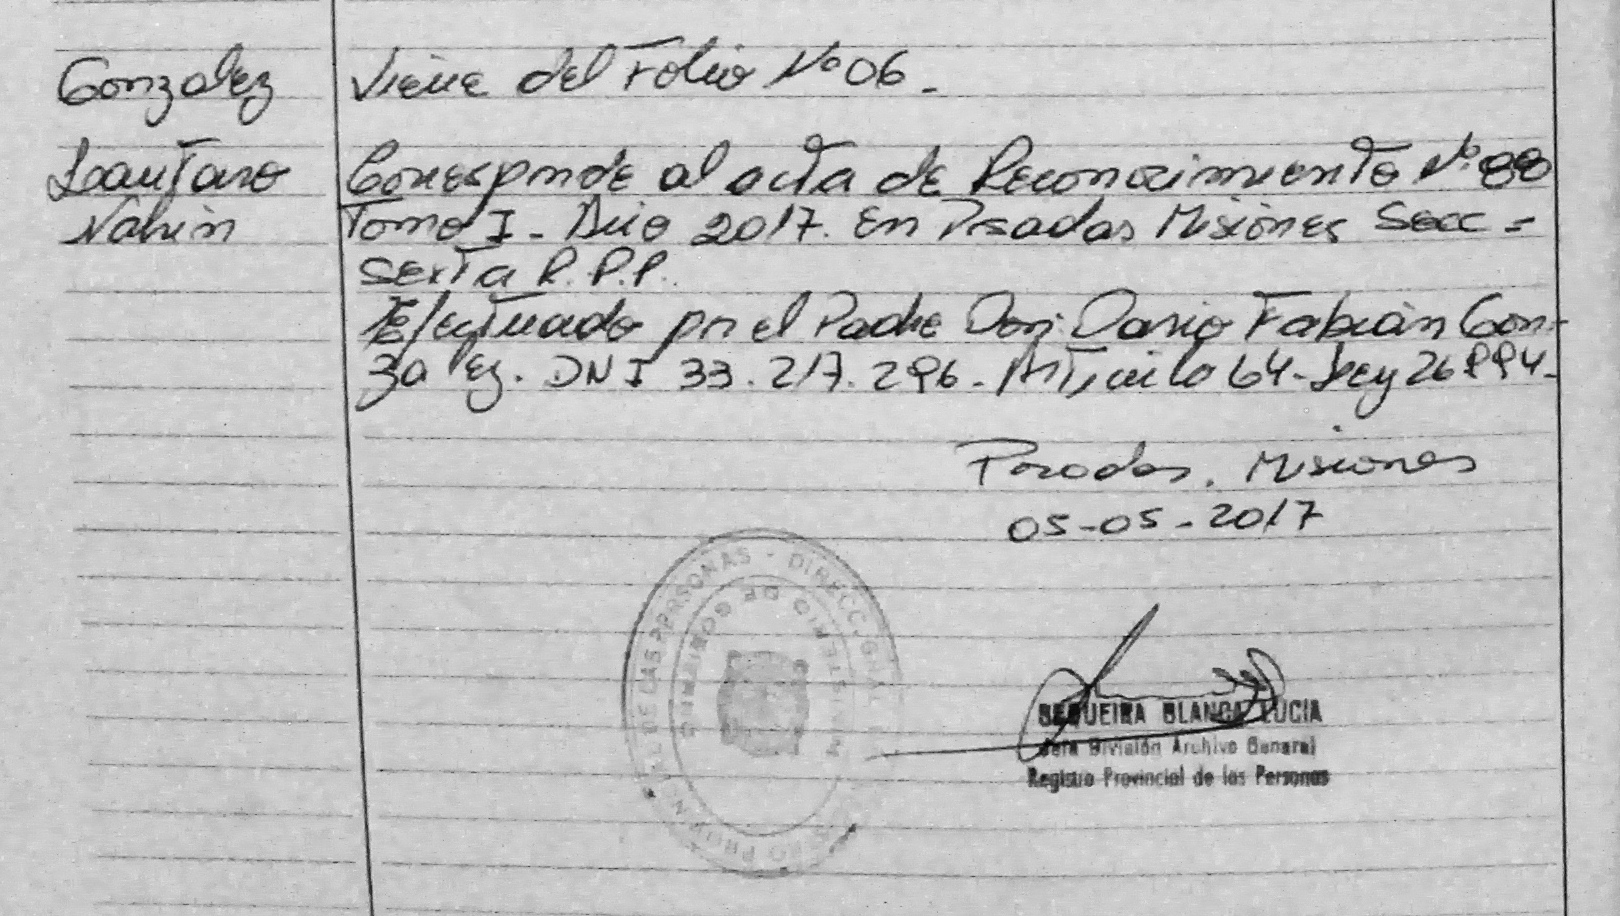 Gonzalez
Viene del Folio Nº 06.
Lautaro
Corresponde al acta de Reconocimiento Nº 88
Nahin
Tomo I - Año 2017. En Posadas Misiones Secc =
sexta R.P.P.
Efectuado por el Padre Don: Dario Fabián Gon-
zalez. DNI 33.217.296. Articulo 64 - Ley 26994.
Posadas, Misiones
05-05-2017
DE LAS PERSONAS - DIRECC. GRAL
MINISTERIO DE GOBIERNO
SEQUEIRA BLANCA LUCIA
Jefa División Archivo General
Registro Provincial de las Personas